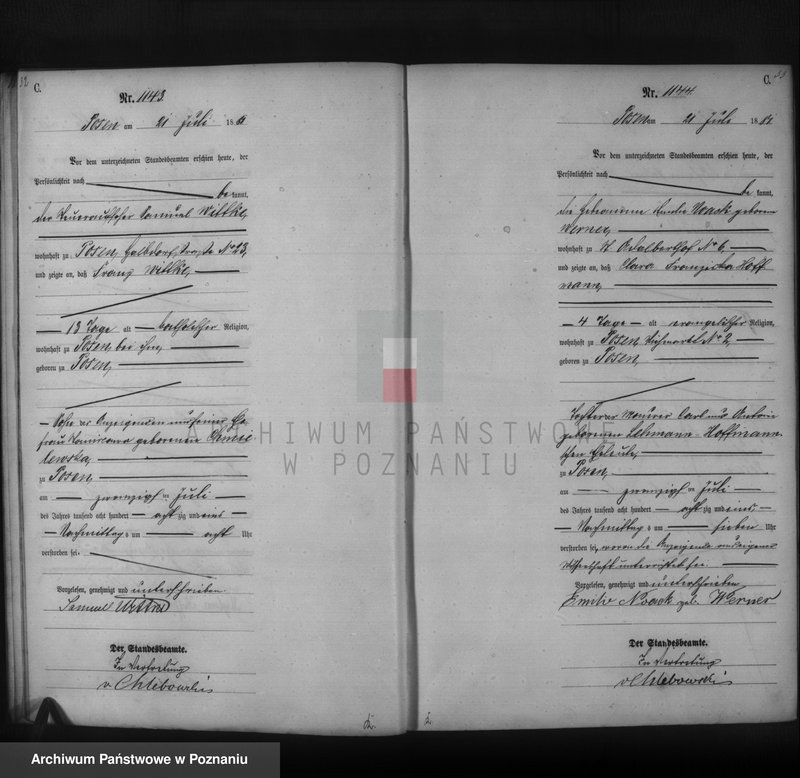 32
C.
Nr. 1143.
Posen am 21 Juli 1881
Vor dem unterzeichneten Standesbeamten erschien heute, der
Persönlichkeit nach be kannt,
der Samuel Wittke,
wohnhaft zu Posen, No 23,
und zeigte an, daß Franz Wittke,
13 Tage alt katholischer Religion,
wohnhaft zu Posen bei ihm,
geboren zu Posen,
Sohn des Anzeigenden und seiner Ehe
frau geborenen
lewska,
zu Posen,
am zwanzigsten Juli
des Jahres tausend acht hundert acht zig und eins
Nachmittags um acht Uhr
verstorben sei.
Vorgelesen, genehmigt und unterschrieben
Samuel Wittke
Der Standesbeamte.
In Vertretung
v Chlebowski
C.
Nr. 1144.
Posen am 21 Juli 1881
Vor dem unterzeichneten Standesbeamten erschien heute, der
Persönlichkeit nach be kannt,
die Hebamme Emilie Noack geborene
Werner,
wohnhaft zu St Adalberthof No 6,
und zeigte an, daß Clara Franziska Hoff
mann,
4 Tage alt evangelischer Religion,
wohnhaft zu Posen No 2,
geboren zu Posen,
Tochter der Maurer Carl und Antonie
geborenen Lehmann-Hoffmann
schen Eheleute,
zu Posen,
am zwanzigsten Juli
des Jahres tausend acht hundert acht zig und eins
Nachmittags um sieben Uhr
verstorben sei, wovon die Anzeigende aus eigener
Wissenschaft unterrichtet sei.
Vorgelesen, genehmigt und unterschrieben
Emilie Noack geb. Werner
Der Standesbeamte.
In Vertretung
v Chlebowski
ARCHIWUM PAŃSTWOWE
W POZNANIU
Archiwum Państwowe w Poznaniu